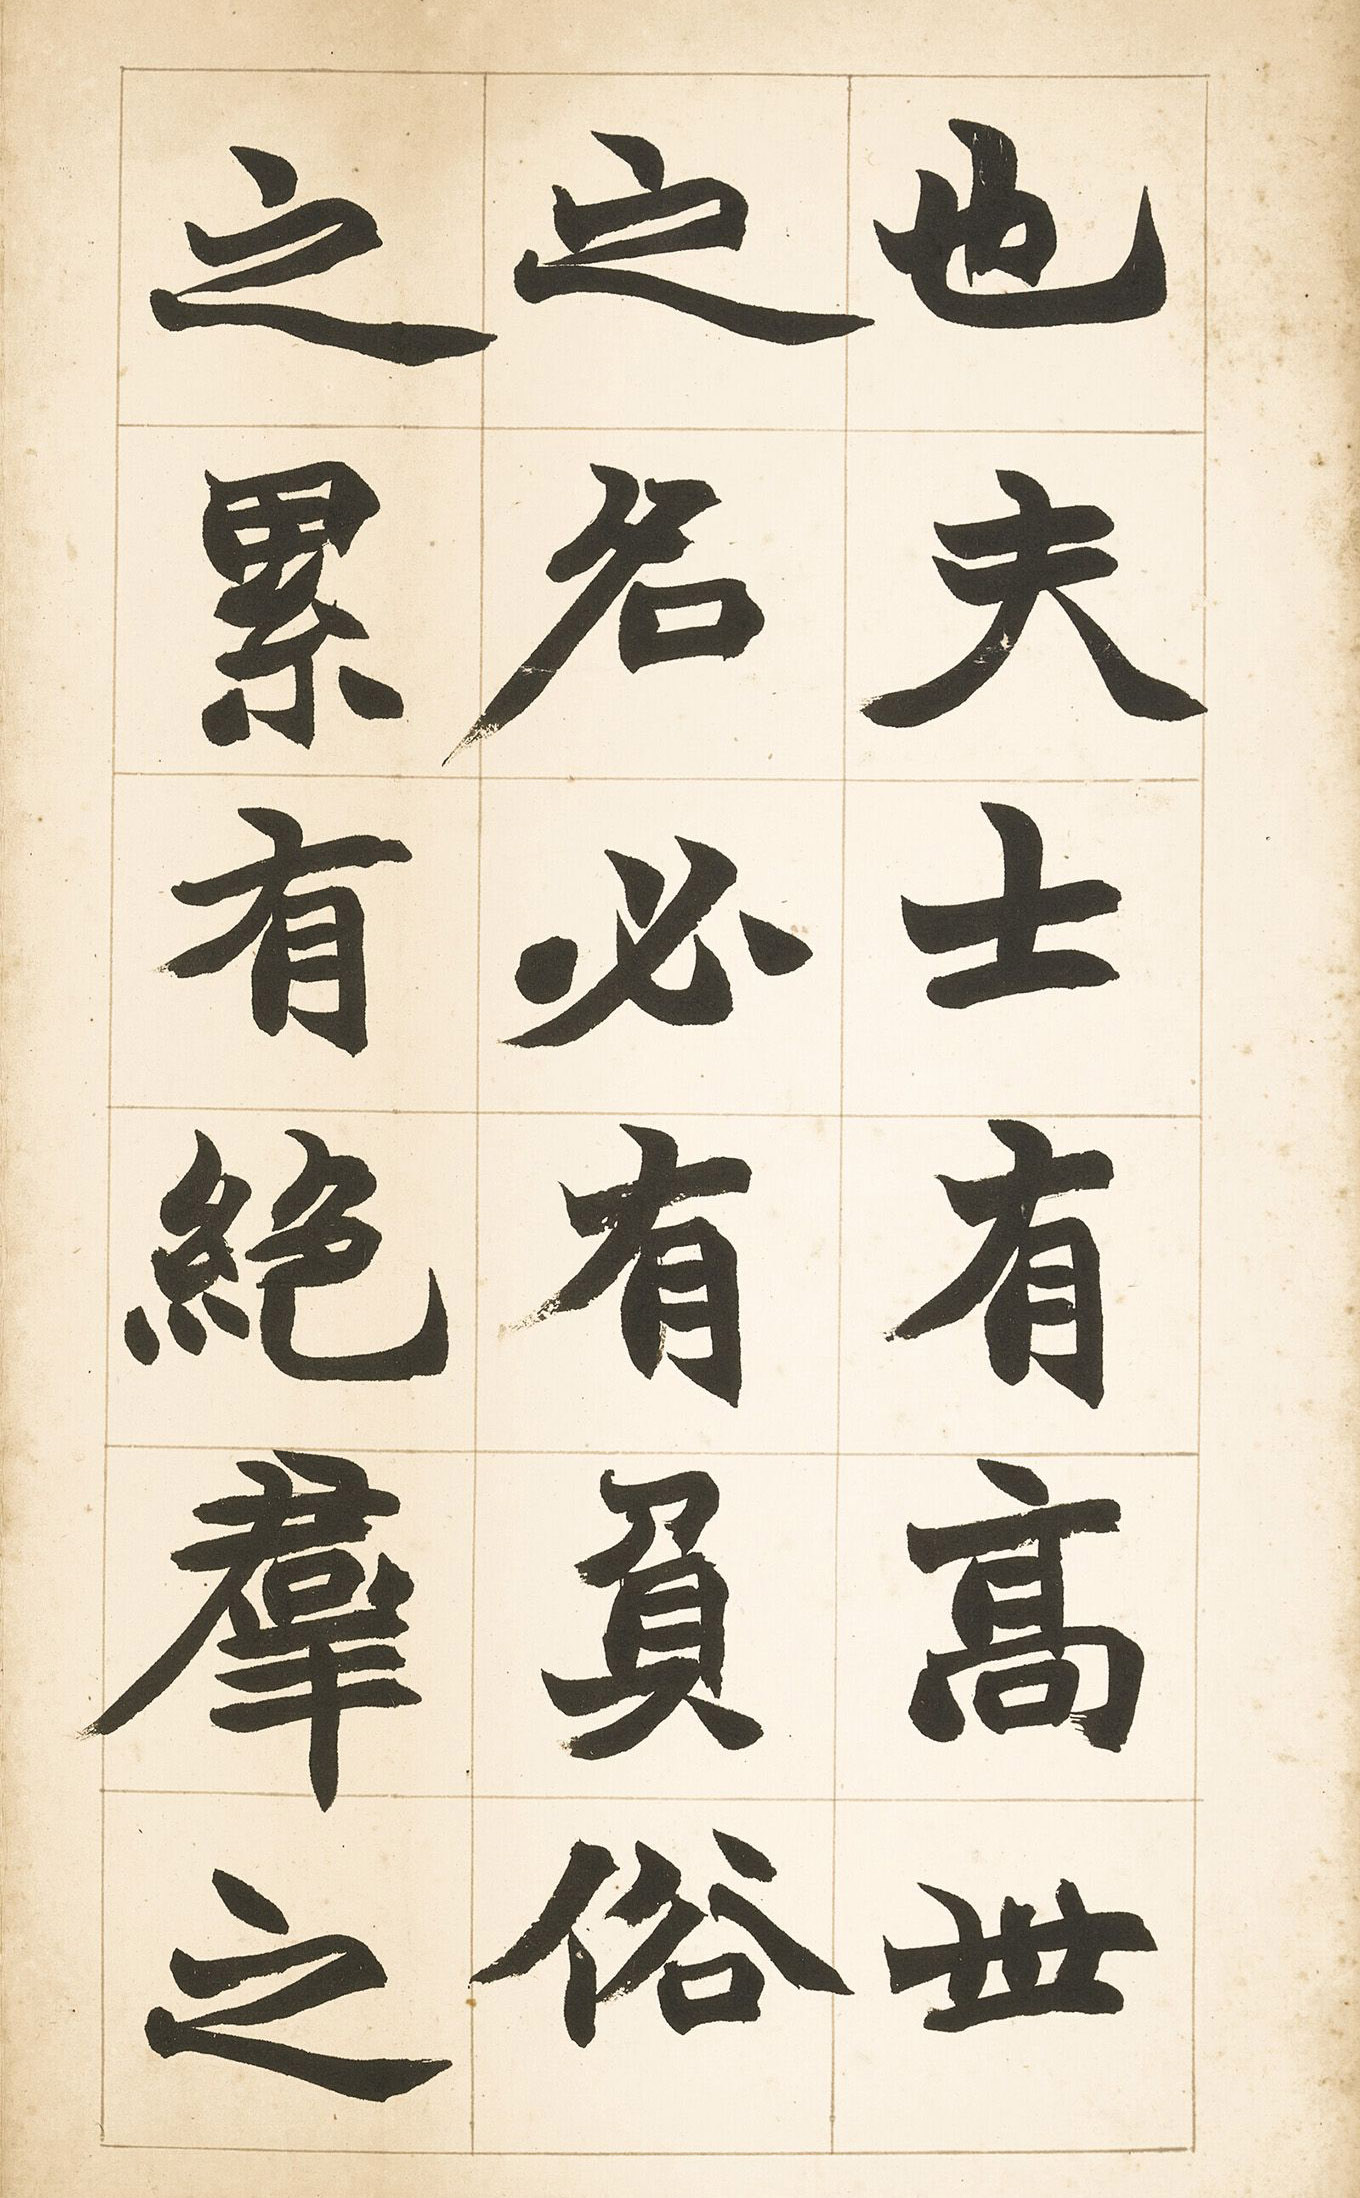 也夫士有高世
之名必有負俗
之累有絕羣之